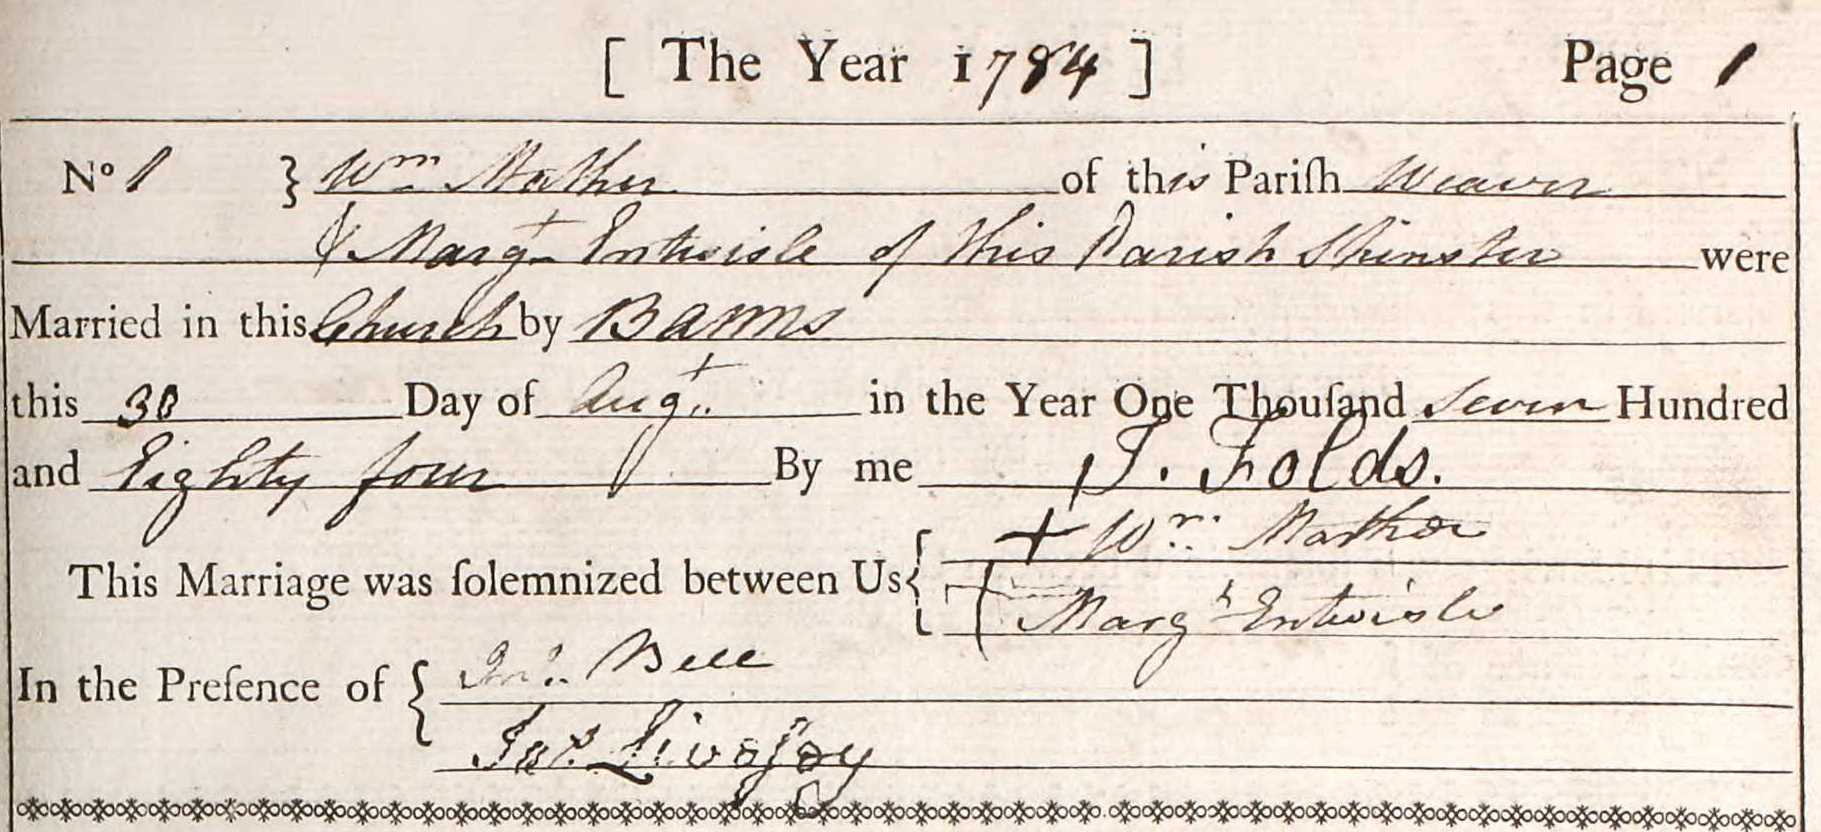 [ The Year 1784 ] Page 1
No 1 } Wm Mather of this Pariſh Weaver
& Margt Entwisle of this Parish Spinster were
Married in this Church by Banns
this 30 Day of Augt in the Year One Thouſand Seven Hundred
and Eighty four By me J. Folds.
This Marriage was ſolemnized between Us { + Wm Mather
Margt Entwisle
In the Preſence of { Jno. Bell
Jas. Livesey